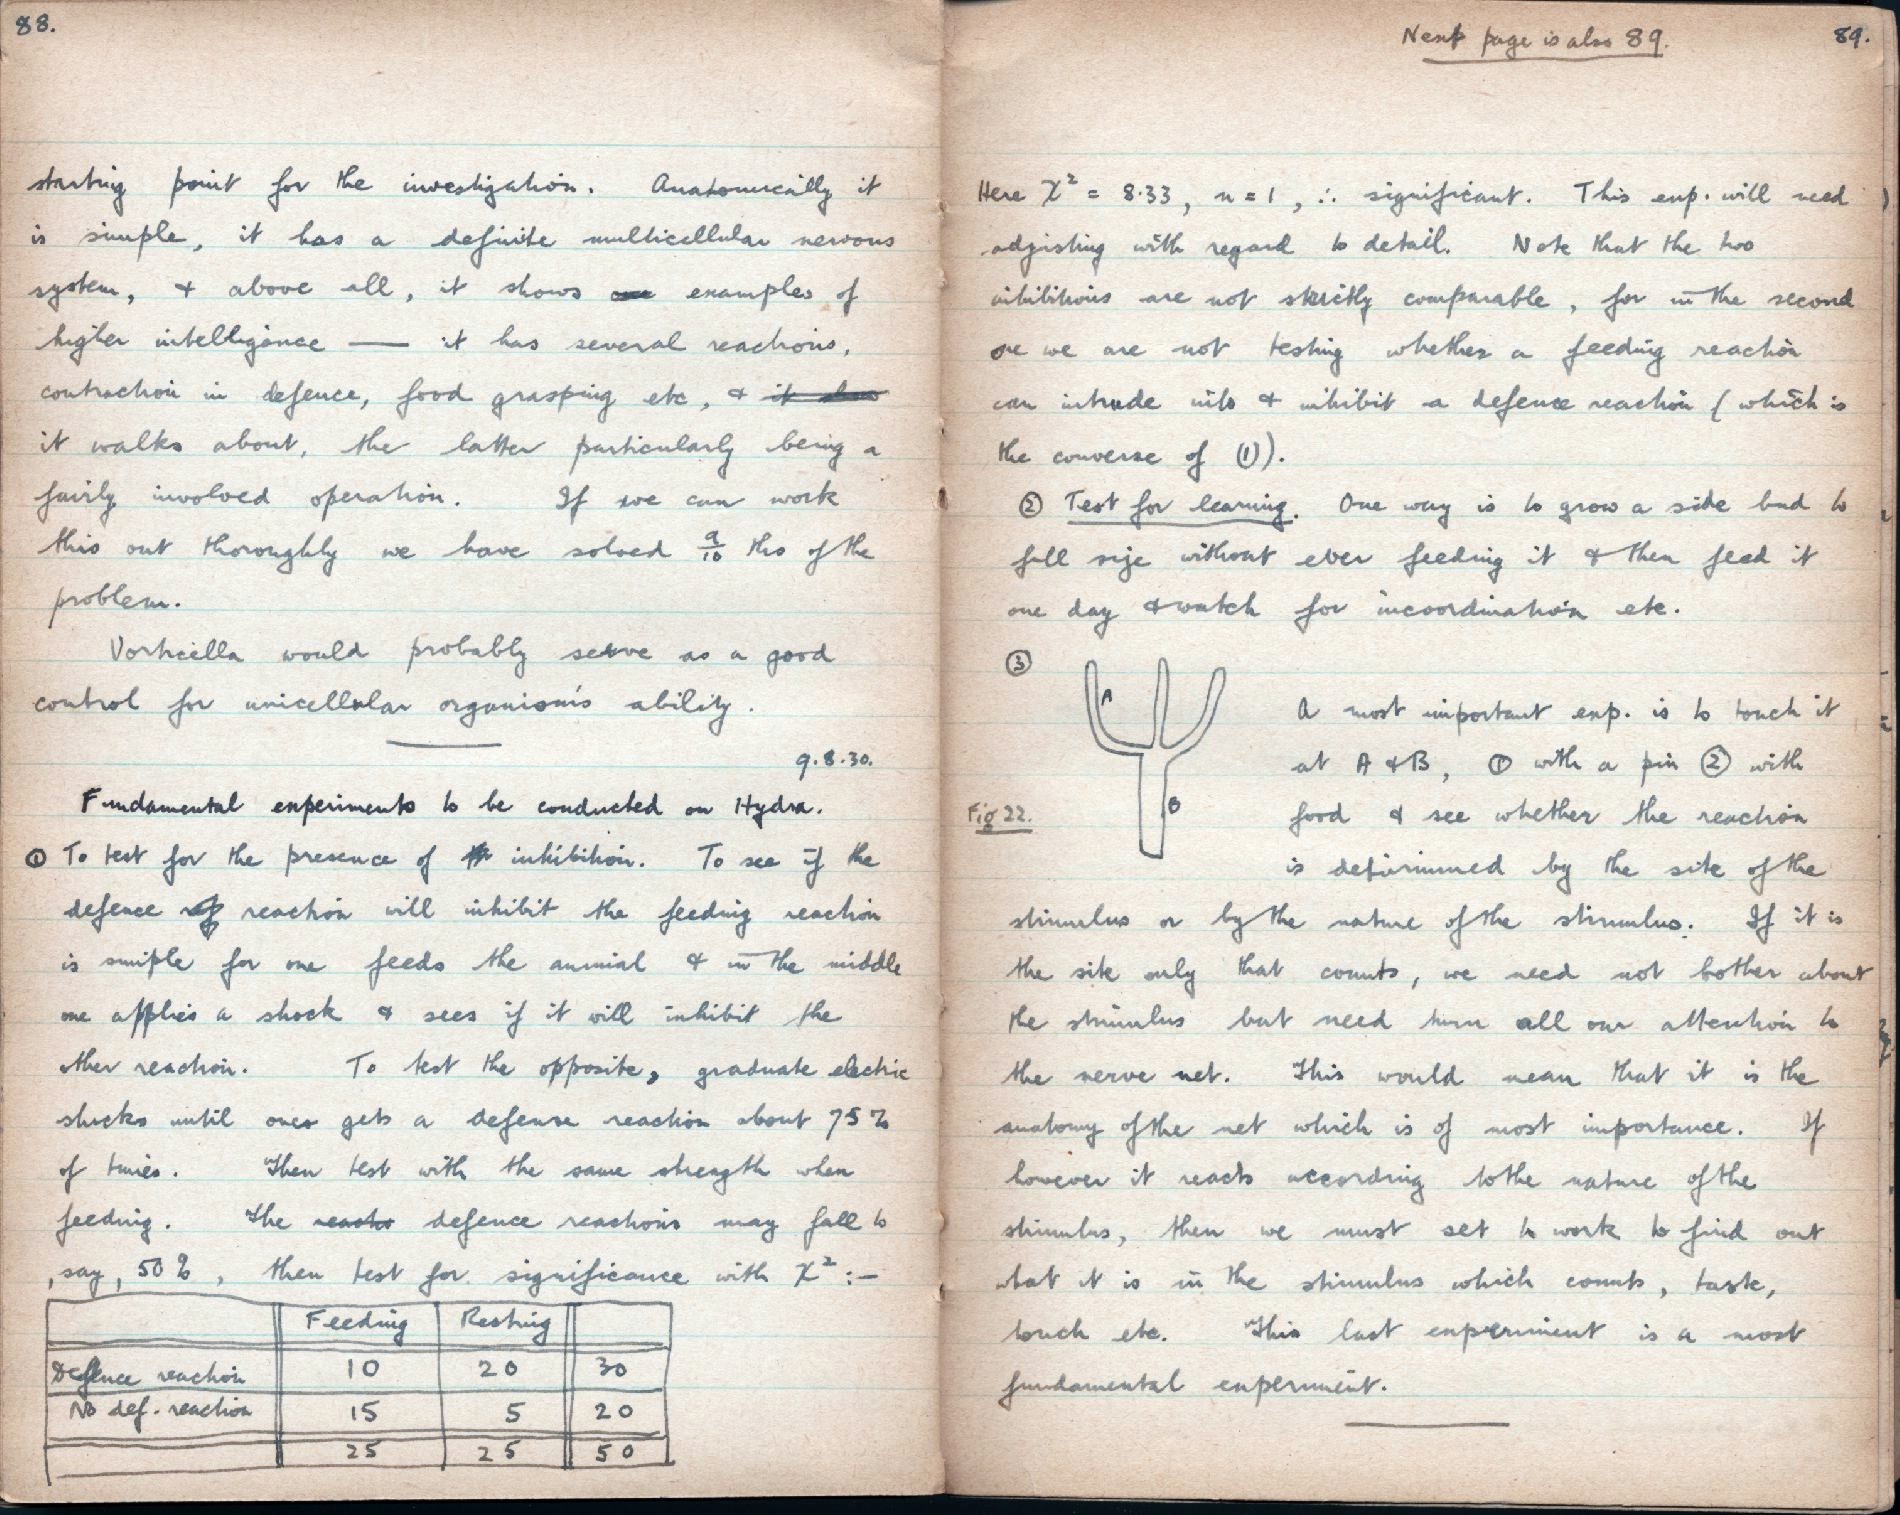 88.
starting point for the investigation. Anatomically it
is simple, it has a definite multicellular nervous
system, & above all, it shows examples of
higher intelligence — it has several reactions,
contraction in defence, food grasping etc, & it show
it walks about, the latter particularly being a
fairly involved operation. If we can work
this out thoroughly we have solved 9/10 ths of the
problem.
Vorticella would probably serve as a good
control for unicellular organism's ability.
9.8.30.
Fundamental experiments to be conducted on Hydra.
① To test for the presence of inhibition. To see if the
defence reaction will inhibit the feeding reaction
is simple for one feeds the animal & in the middle
one applies a shock & sees if it will inhibit the
other reaction. To test the opposite, graduate electric
shocks until one gets a defense reaction about 75%
of times. Then test with the same strength when
feeding. The reacto defence reactions may fall to
, say, 50%, then test for significance with χ² :-
Feeding Resting
Defence reaction 10 20 30
No def. reaction 15 5 20
25 25 50
Next page is also 89.
89.
Here χ² = 8.33, n = 1, ∴ significant. This exp. will need
adjisting with regard to detail. Note that the two
inhibitions are not strictly comparable, for in the second
one we are not testing whether a feeding reaction
can intrude into & inhibit a defence reaction (which is
the converse of (1)).
② Test for learning. One way is to grow a side bud to
full size without ever feeding it & then feed it
one day & watch for incoordination etc.
③
A
B
Fig 22.
A most important exp. is to touch it
at A & B, ① with a pin ② with
food & see whether the reaction
is determined by the site of the
stimulus or by the nature of the stimulus. If it is
the site only that counts, we need not bother about
the stimulus but need turn all our attention to
the nerve net. This would mean that it is the
anatomy of the net which is of most importance. If
however it reacts according to the nature of the
stimulus, then we must set to work to find out
what it is in the stimulus which counts, taste,
touch etc. This last experiment is a most
fundamental experiment.